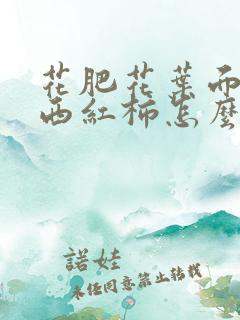 花肥花葉而
西紅柿怎麼
諾娃
未經同意禁止轉載